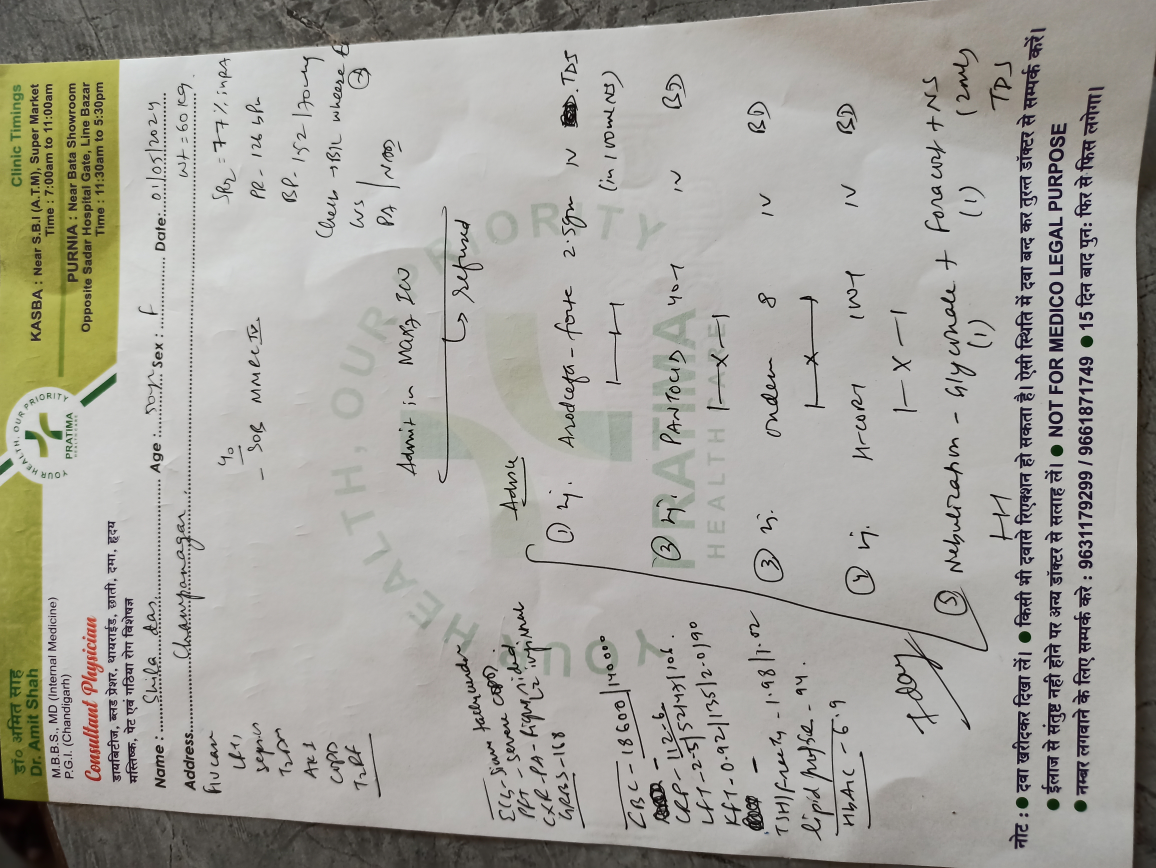 डॉ० अमित साह
Dr. Amit Shah
M.B.B.S., MD (Internal Medicine)
P.G.I. (Chandigarh)
Consultant Physician
डायबिटीज, ब्लड प्रेशर, थायराईड, छाती, दमा, हृदय
मस्तिष्क, पेट एवं गठिया रोग विशेषज्ञ
YOUR HEALTH, OUR PRIORITY
PRATIMA
HEALTH CARE
Clinic Timings
KASBA : Near S.B.I (A.T.M), Super Market
Time : 7:00am to 11:00am
PURNIA : Near Bata Showroom
Opposite Sadar Hospital Gate, Line Bazar
Time : 11:30am to 5:30pm
Name : Shila das Age : 50yr Sex : F Date: 01/05/2024
Address Champanagar Wt = 60 kg
LRTI
sepsis
T2DM
AKI
COPD
T2RF
c/o
- SOB MMRC IV
SPO2 = 77% in RA
PR - 126 bpm
BP - 152/70 mmHg
Chest → B/L wheeze
PA / NAD
Admit in Max7 ICU
↳ refused
ECG - Sinus tachycardia
PFT - severe COPD
GRBS - 168
CBC - 18600/14000
CRP - 112.6
LFT - 2.5/52/43/106.
KFT - 0.92/135/2.0/90
TSH/Free T4 - 1.98/1.02
lipid profile - 94.
HbA1C - 6.9
Advice
① Inj. Arodcefa - forte 2.5gm IV TDS
1—1—1 (in 100ml NS)
② Inj. PANTOCID 40 1 IV BD
1—X—1
③ Inj. ondem 8 IV BD
1—X—1
④ Inj. H-cort 100 1 IV BD
1—X—1
⑤ Nebulization - Glycomate + Foracort + NS
(1) (1) (2ml)
TDS
1 day
नोट : ● दवा खरीदकर दिखा लें। ● किसी भी दवासे रिएक्शन हो सकता है। ऐसी स्थिति में दवा बन्द कर तुरन्त डॉक्टर से सम्पर्क करें।
● ईलाज से संतुष्ट नही होने पर अन्य डॉक्टर से सलाह लें। ● NOT FOR MEDICO LEGAL PURPOSE
● नम्बर लगवाने के लिए सम्पर्क करे : 9631179299 / 9661871749 ● 15 दिन बाद पुन: फिर से फिस लगेगा।